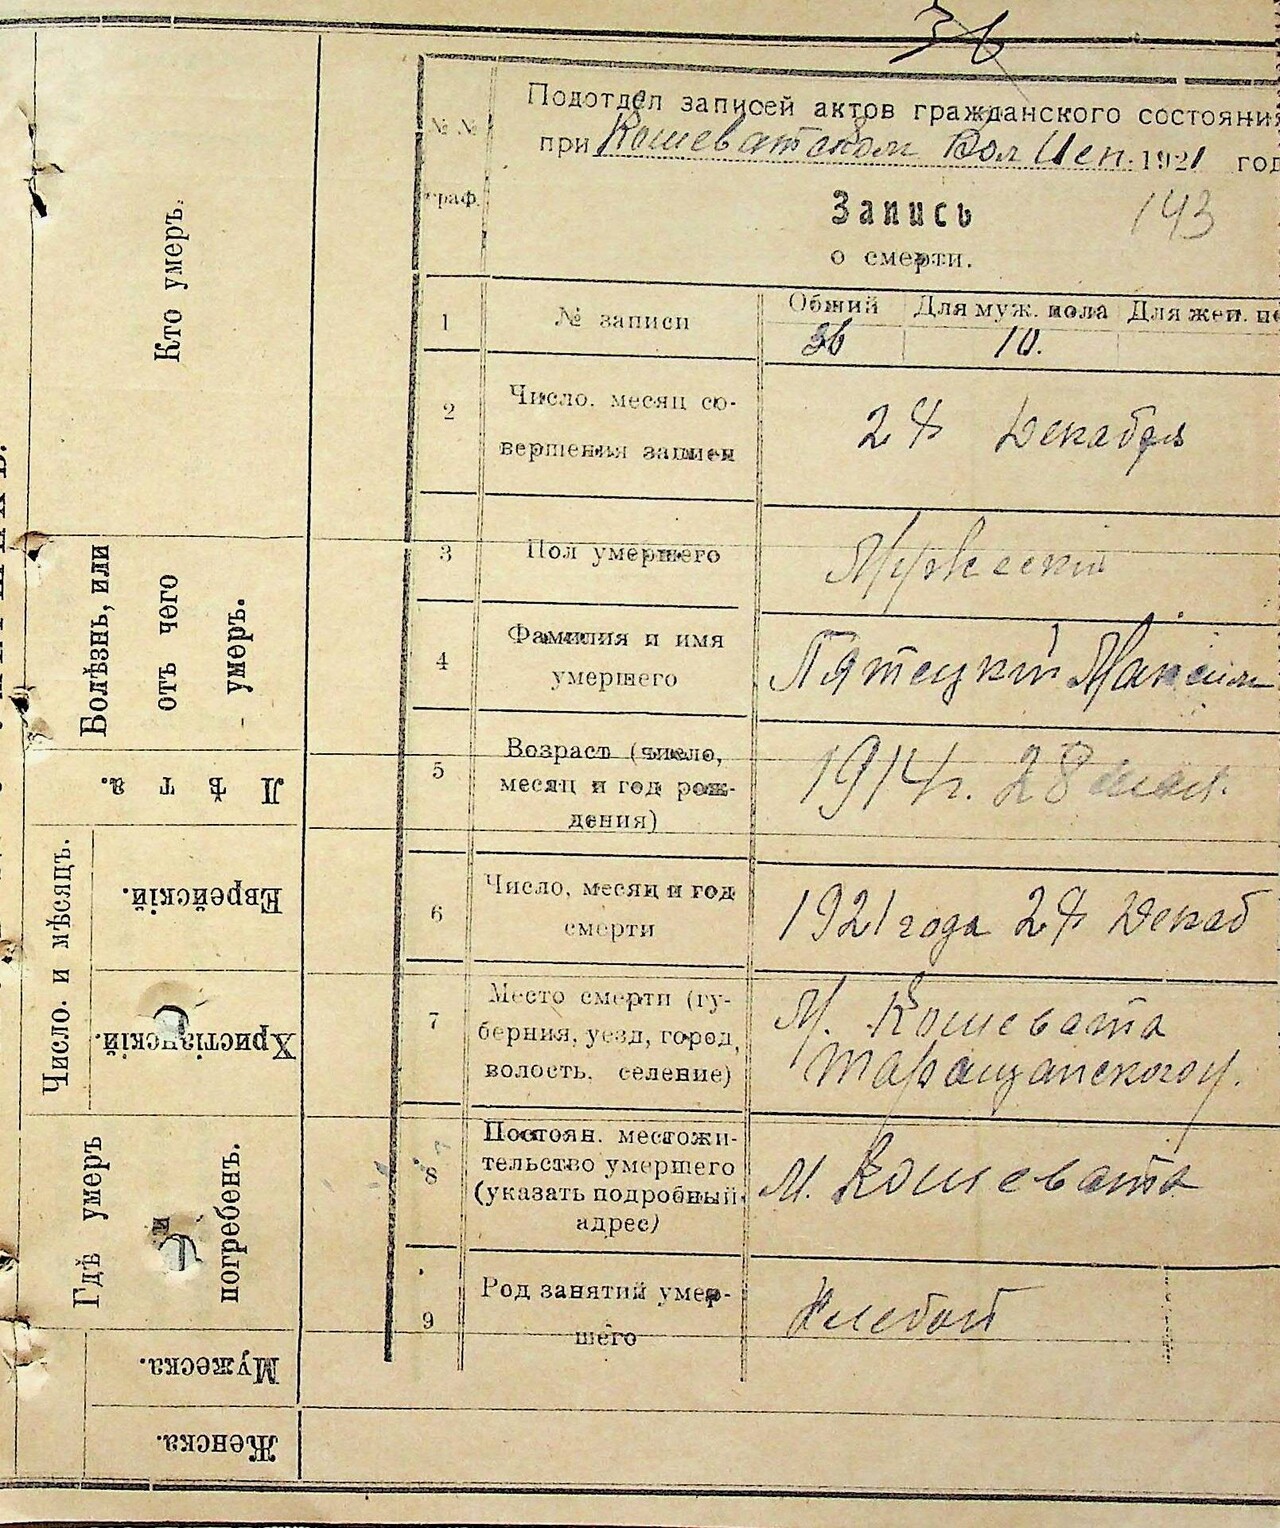 36
Подотдел записей актов гражданского состояния
при Кошеватском Вол Исп. 1921 год
№ №
граф.
Запись
143
о смерти.
1
№ записи
Общий
Для муж. пола
Для жен. по
36
10.
2
Число, месяц со-
вершения записи
Декабря
3
Пол умершего
Мужеский
4
Фамилия и имя
умершего
Пятецкий Максим
5
Возраст (число,
месяц и год рож-
дения)
1914 г. 28 мая.
6
Число, месяц и год
смерти
1921 года Декаб
7
Место смерти (гу-
берния, уезд, город,
волость, селение)
М. Кошевата
Таращанского у.
8
Постоян. местожи-
тельство умершего
(указать подробный
адрес)
М. Кошевата
9
Род занятий умер-
шего
Кто умеръ.
Болѣзнь, или
отъ чего
умеръ.
Лѣта.
Число и мѣсяцъ.
Еврейскій.
Христіанскій.
Гдѣ умеръ
и
погребенъ.
Мужеска.
Женска.